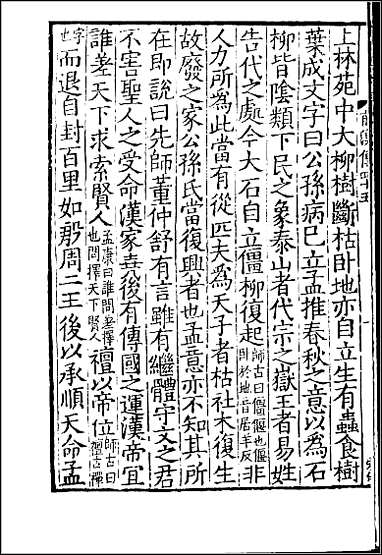 前漢傳四十五
上林苑中大柳樹斷枯卧地亦自立生有蟲食樹
葉成文字曰公孫病巳立孟推春秋之意以為石
柳皆陰類下民之象泰山者代宗之嶽王者易姓
告代之處今大石自立僵柳復起師古曰僵偃也偃卧於地音居羊反非
人力所為此當有從匹夫為天子者枯社木復生
故廢之家公孫氏當復興者也孟意亦不知其所
在即說曰先師董仲舒有言雖有繼體守文之君
不害聖人之受命漢家堯後有傳國之運漢帝宜
誰差天下求索賢人孟康曰誰問差擇也問擇天下賢人襢以帝位師古曰襢古禪
字也而退自封百里如殷周二王後以承順天命孟